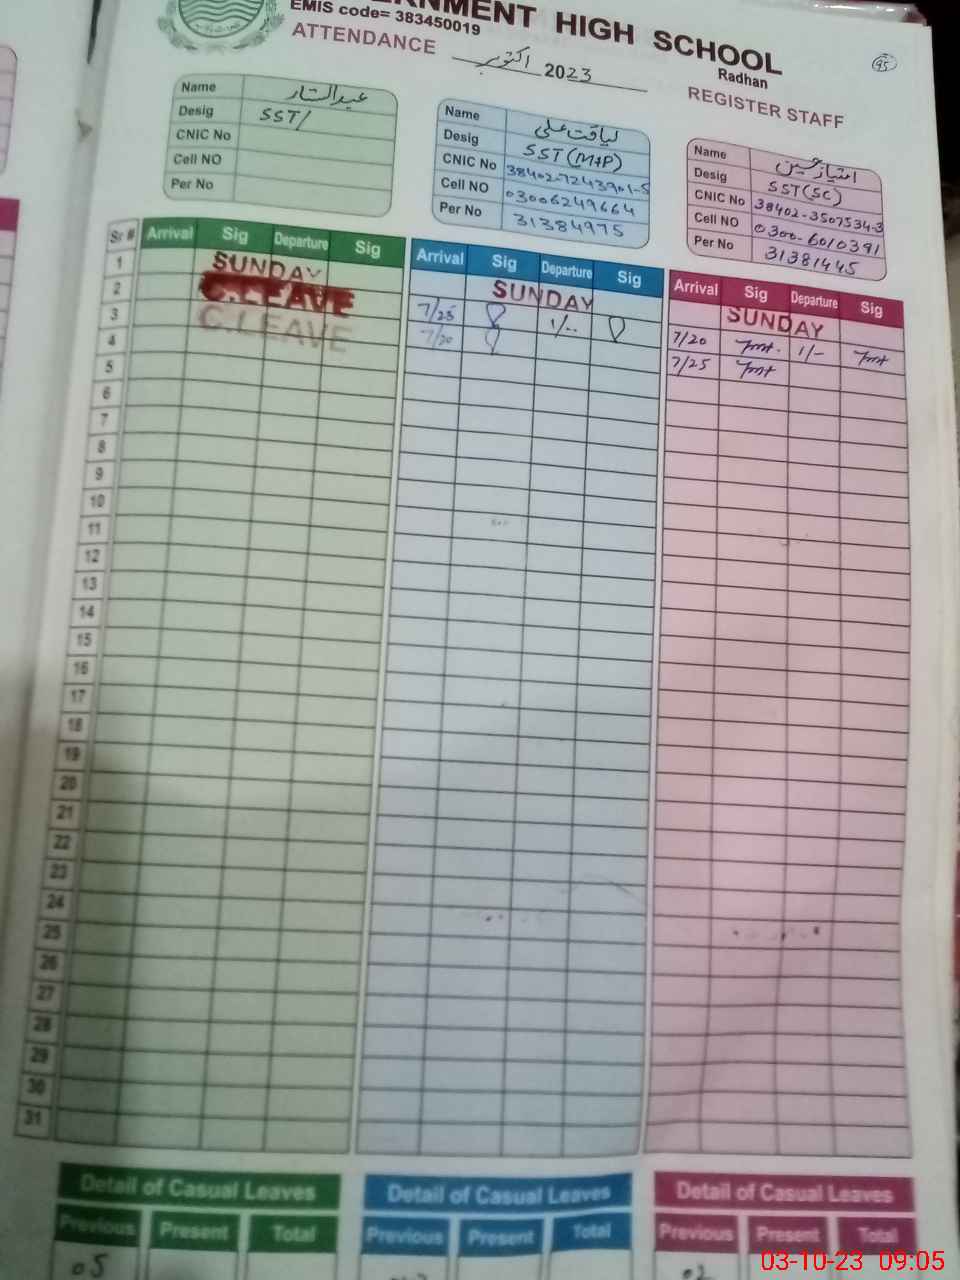 GOVERNMENT HIGH SCHOOL
EMIS code= 383450019
Radhan
ATTENDANCE
اکتوبر 2023
REGISTER STAFF
95
Name عبدالستار
Desig SST/
CNIC No
Cell NO
Per No
Name لیاقت علی
Desig SST (M+P)
CNIC No 38402-7243901-5
Cell NO 03006249664
Per No 31384975
Name امتیاز حسین
Desig SST (SC)
CNIC No 38402-3507534-3
Cell NO 0300-6010391
Per No 31381445
Sr # Arrival Sig Departure Sig
Arrival Sig Departure Sig
Arrival Sig Departure Sig
1 SUNDAY SUNDAY SUNDAY
2 C.LEAVE 7/25 1/-- 7/20 1/-
3 C.LEAVE 7/20 7/25
4
5
6
7
8
9
10
11
12
13
14
15
16
17
18
19
20
21
22
23
24
25
26
27
28
29
30
31
Detail of Casual Leaves
Previous Present Total
05
Detail of Casual Leaves
Previous Present Total
Detail of Casual Leaves
Previous Present Total
02
03-10-23 09:05